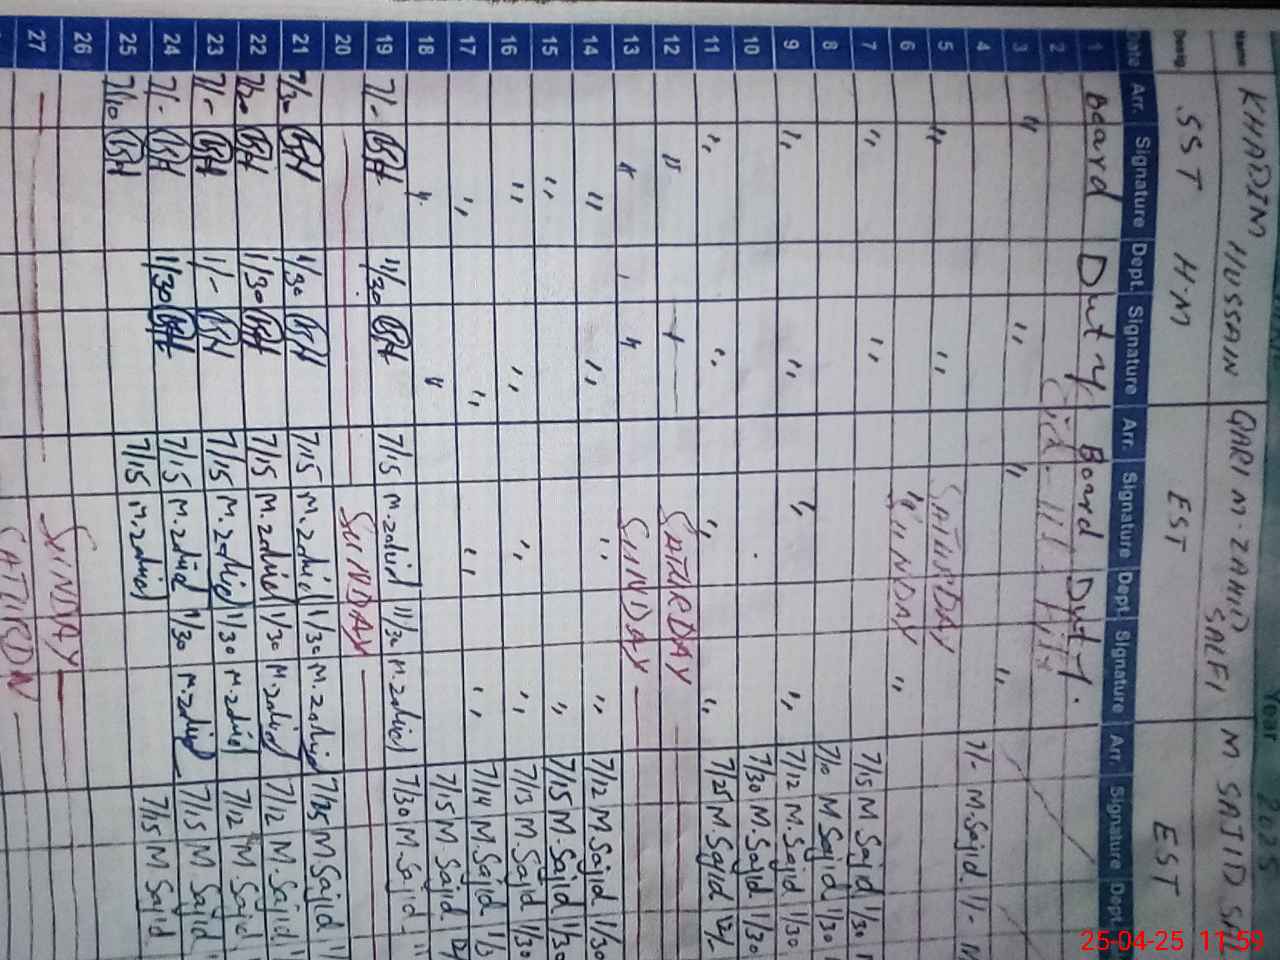 Year 2025
Name KHADIM HUSSAN QARI M-ZAHID SALFI M SAJID
Desig. SST H-M EST EST
Date Arr. Signature Dept. Signature Arr. Signature Dept. Signature Arr. Signature Dept.
1 Board Duty Board Duty.
2
3 " " " "
4 7/- M.Sajid 1/-
5 " " SATURDAY
6 " SUNDAY "
7 " " 7/15 M Sajid 1/30
8 7/10 M Sajid 1/30
9 " " " " 7/12 M.Sajid 1/30
10 7/30 M.Sajid 1/30
11 " " " " 7/25 M.Sajid 12/-
12 " SATURDAY
13 " " SUNDAY
14 " " " " 7/12 M.Sajid 1/30
15 " " 7/15 M.Sajid 1/30
16 " " " " 7/13 M.Sajid 1/30
17 " " " " 7/14 M.Sajid 1/3
18 " " 7/15 M.Sajid 12/
19 7/- 11/30 7/15 M.Zahid 11/30 M.Zahid 7/30 M.Sajid 11
20 SUNDAY
21 7/30 1/30 7/15 M.Zahid 1/30 M.Zahid 7/25 M.Sajid 1/
22 7/20 1/30 7/15 M.Zahid 1/30 M.Zahid 7/12 M.Sajid 1
23 7/- 1/- 7/15 M.Zahid 1/30 M.Zahid 7/12 M.Sajid
24 7/- 1/30 7/15 M.Zahid 1/30 M.Zahid 7/15 M.Sajid
25 7/10 7/15 M.Zahid 7/15 M Sajid
26 SUNDAY
27 SATURDAY
25-04-25 11:59